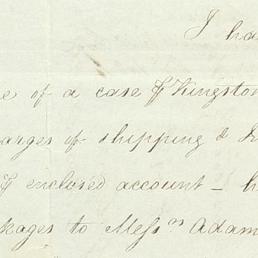 I ha
e of a case P Kingston
arges of shipping &
P enclosed account — h
kages to Mess.rs Adam